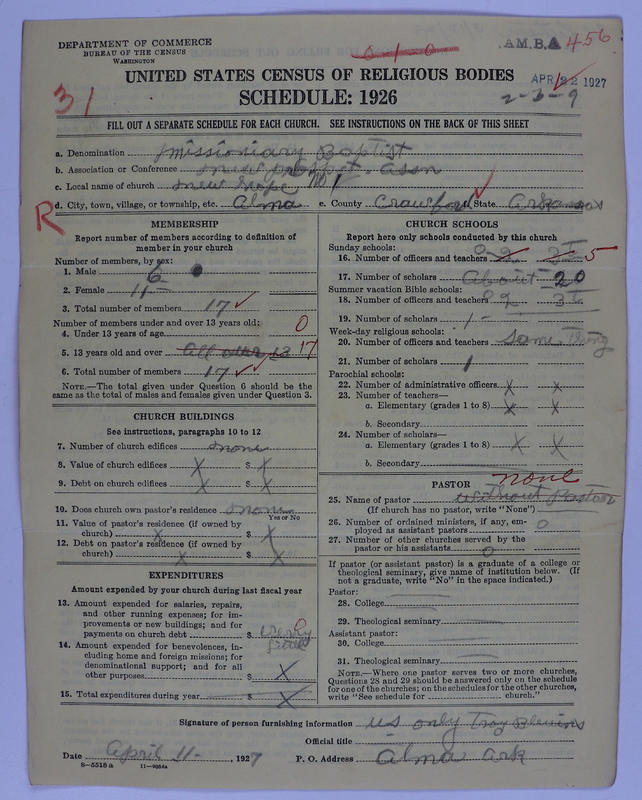 DEPARTMENT OF COMMERCE
BUREAU OF THE CENSUS
WASHINGTON
0-1-0
A.M.B.A 456
UNITED STATES CENSUS OF RELIGIOUS BODIES
APR 22 1927
31
SCHEDULE: 1926
2-3-9
FILL OUT A SEPARATE SCHEDULE FOR EACH CHURCH. SEE INSTRUCTIONS ON THE BACK OF THIS SHEET
a. Denomination Missioniary Baptist
b. Association or Conference Assn
c. Local name of church New Hope
d. City, town, village, or township, etc. Alma c. County Crawford State Arkansas
R
MEMBERSHIP
Report number of members according to definition of member in your church
Number of members, by sex:
1. Male 6
2. Female 11
3. Total number of members 17
Number of members under and over 13 years old:
4. Under 13 years of age 0
5. 13 years old and over All over 13 17
6. Total number of members 17
NOTE.—The total given under Question 6 should be the same as the total of males and females given under Question 3.
CHURCH BUILDINGS
See instructions, paragraphs 10 to 12
7. Number of church edifices none
8. Value of church edifices X $ X
9. Debt on church edifices X $ X
10. Does church own pastor's residence none
Yes or No
11. Value of pastor's residence (if owned by church) X $ X
12. Debt on pastor's residence (if owned by church) X $ X
EXPENDITURES
Amount expended by your church during last fiscal year
13. Amount expended for salaries, repairs, and other running expenses; for improvements or new buildings; and for payments on church debt $ 0
14. Amount expended for benevolences, including home and foreign missions; for denominational support; and for all other purposes $ X
15. Total expenditures during year $ X
CHURCH SCHOOLS
Report here only schools conducted by this church
Sunday schools:
16. Number of officers and teachers 5
17. Number of scholars About 20
Summer vacation Bible schools:
18. Number of officers and teachers
19. Number of scholars
Week-day religious schools:
20. Number of officers and teachers Same thing
21. Number of scholars
Parochial schools:
22. Number of administrative officers X X
23. Number of teachers—
a. Elementary (grades 1 to 8) X X
b. Secondary
24. Number of scholars—
a. Elementary (grades 1 to 8) X X
b. Secondary
PASTOR none
25. Name of pastor Without Pastor
(If church has no pastor, write "None")
26. Number of ordained ministers, if any, employed as assistant pastors 0
27. Number of other churches served by the pastor or his assistants 0
If pastor (or assistant pastor) is a graduate of a college or theological seminary, give name of institution below. (If not a graduate, write "No" in the space indicated.)
Pastor:
28. College
29. Theological seminary
Assistant pastor:
30. College
31. Theological seminary
NOTE.—Where one pastor serves two or more churches, Questions 28 and 29 should be answered only on the schedule for one of the churches; on the schedules for the other churches, write "See schedule for church."
Signature of person furnishing information us only Troy Blevins
Official title
Date April 11-, 1927 P. O. Address Alma Ark
8-5518 a 11-9054a